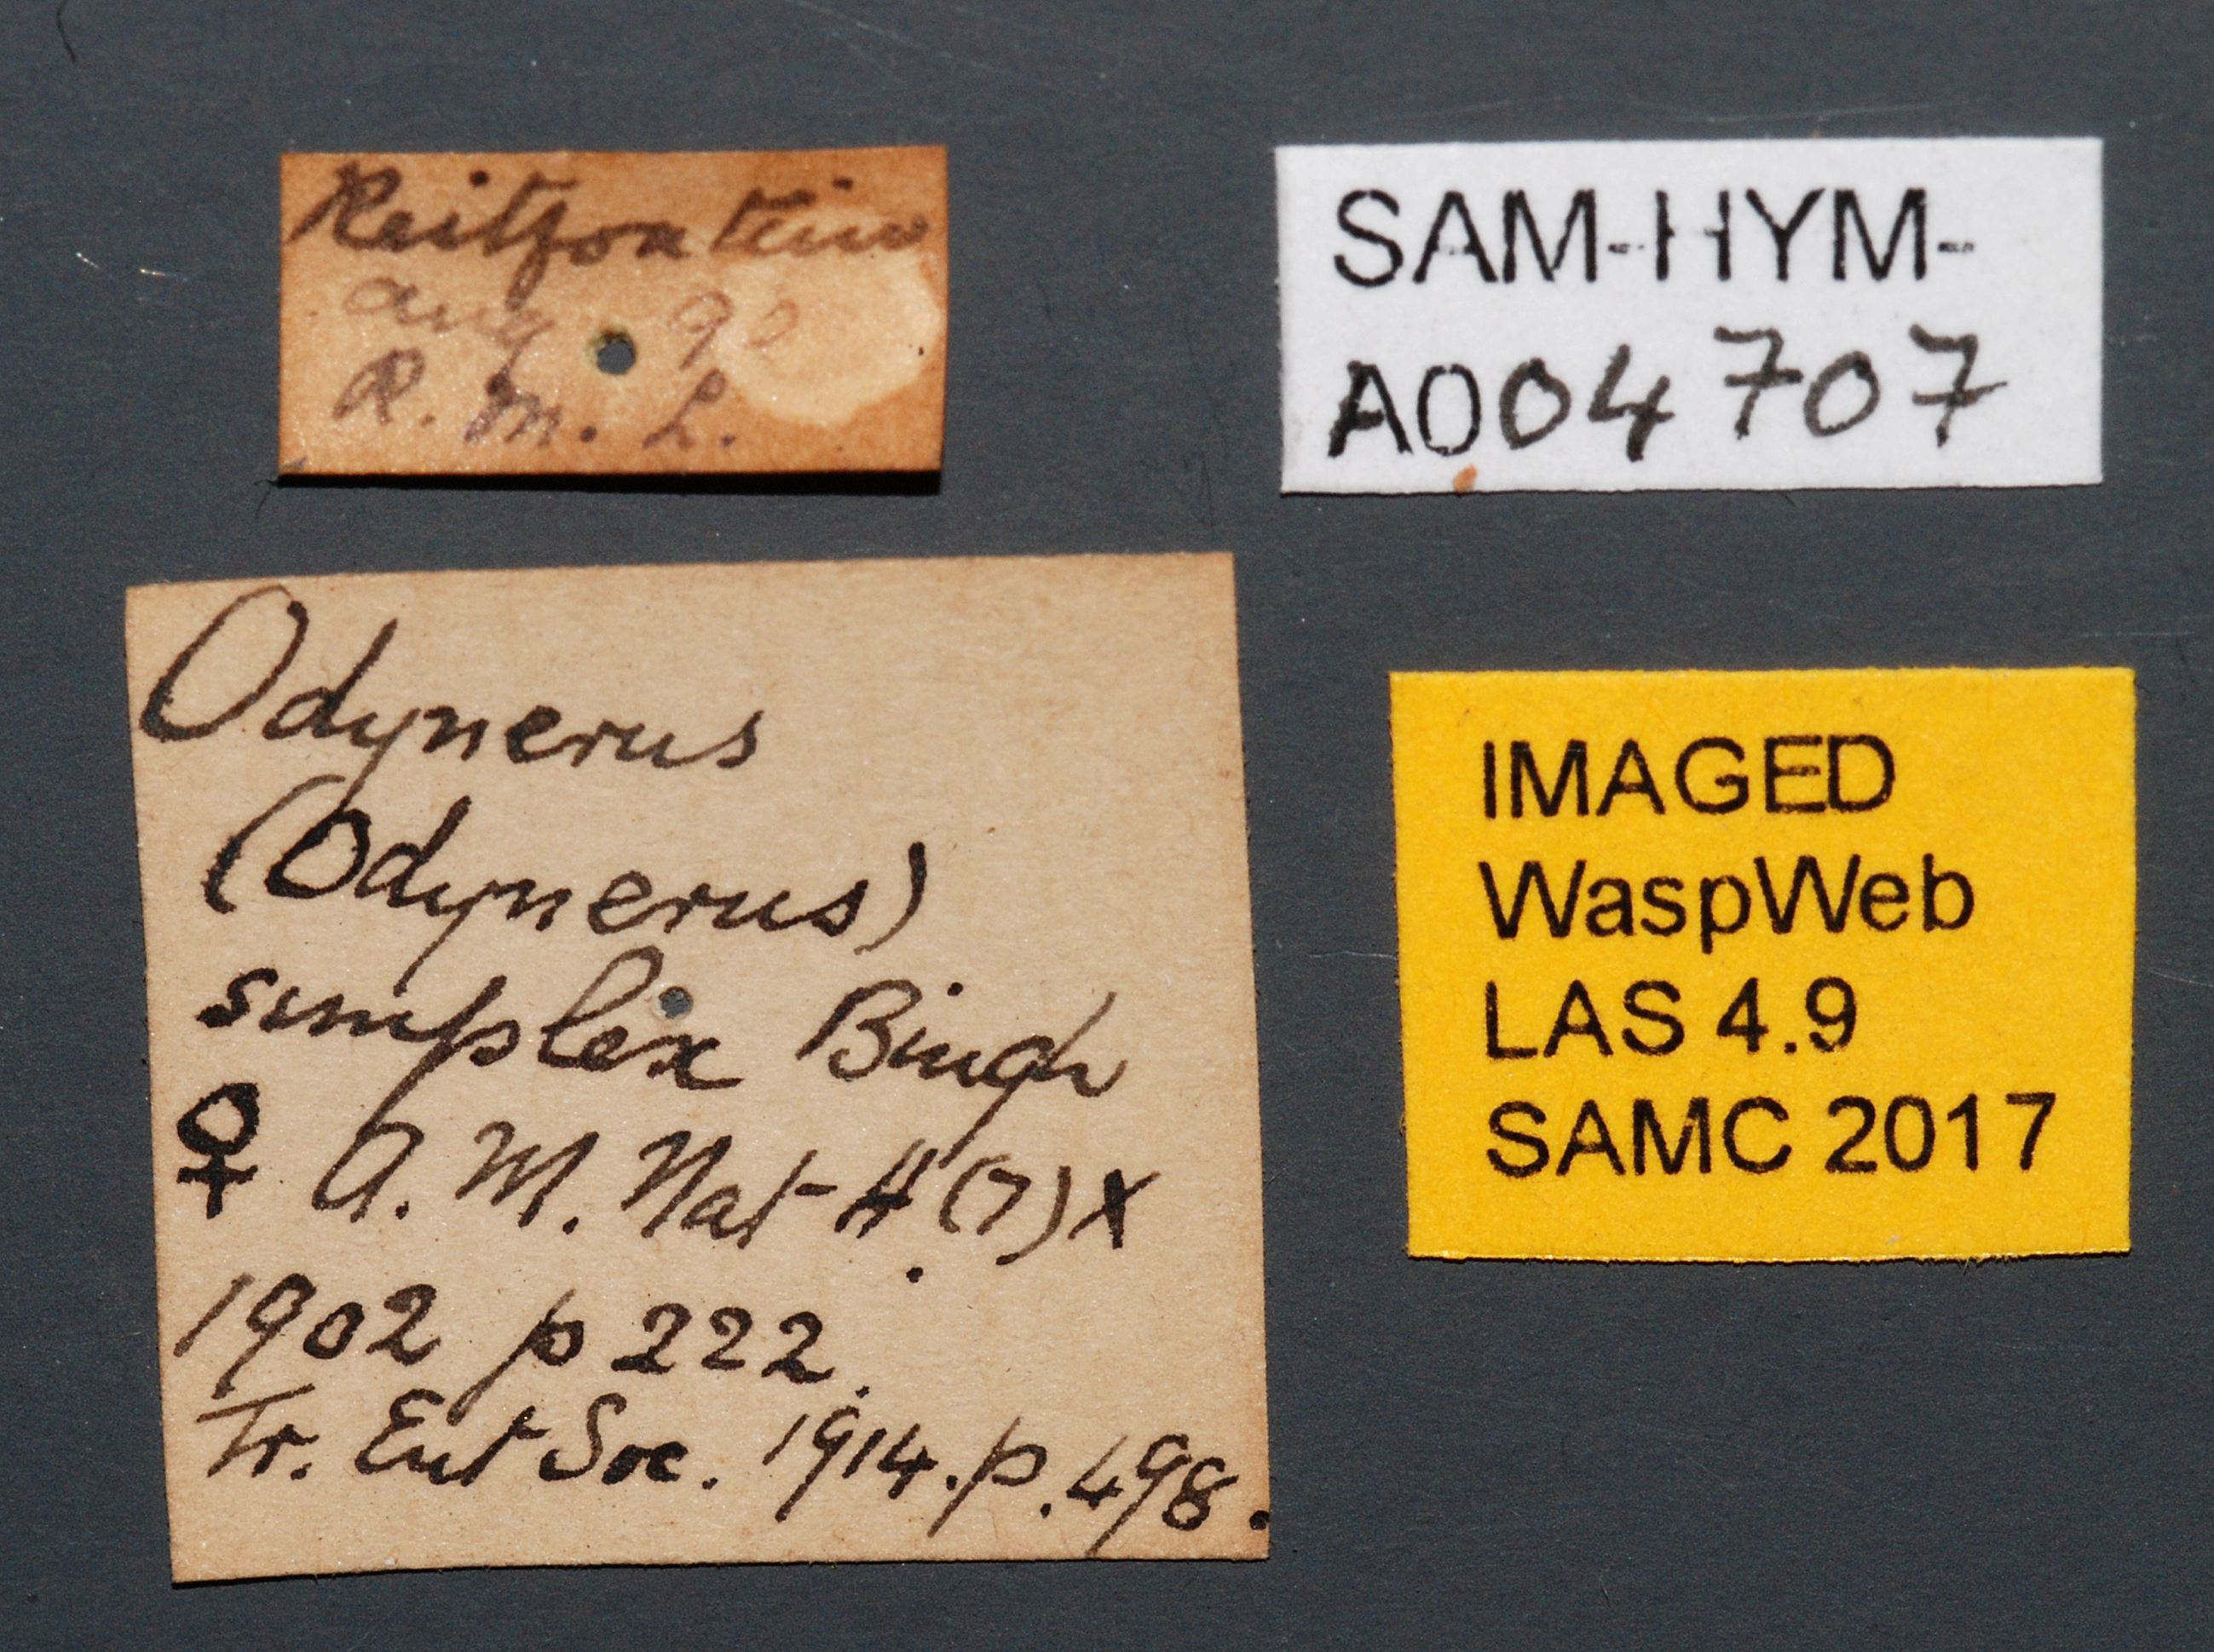 Reitfontein
aug 90
R. M. L.
SAM-HYM-
A004707
Odynerus
(Odynerus)
simplex Bingh
♀ A. M. Nat H. (7) X
1902 p 222.
Tr. Ent Soc. 1914. p. 498.
IMAGED
WaspWeb
LAS 4.9
SAMC 2017